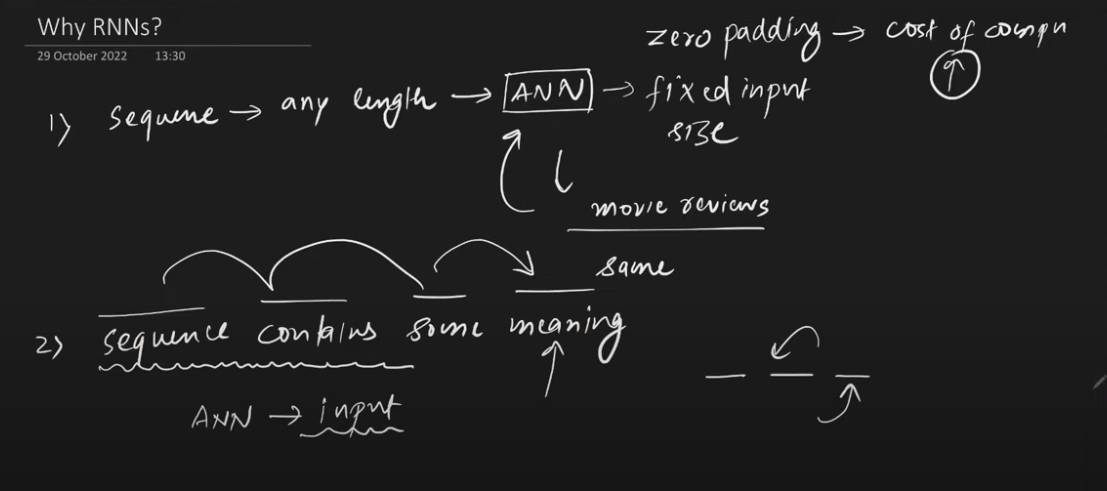 Why RNNs?
29 October 2022 13:30
zero padding → cost of compu
↑
1) sequene → any length → ANN → fixed input
size
movie reviews
same
2) sequence contains some meaning
ANN → input